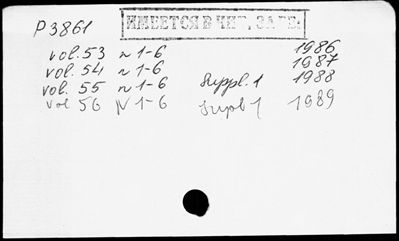 P 3861
ИМЕЕТСЯ В ЧИТ. ЗАЛЕ.
vol. 53 N 1-6 1986
vol. 54 N 1-6 1987
vol. 55 N 1-6 Suppl. 1 1988
vol 56 N 1-6 Suppl 1 1989